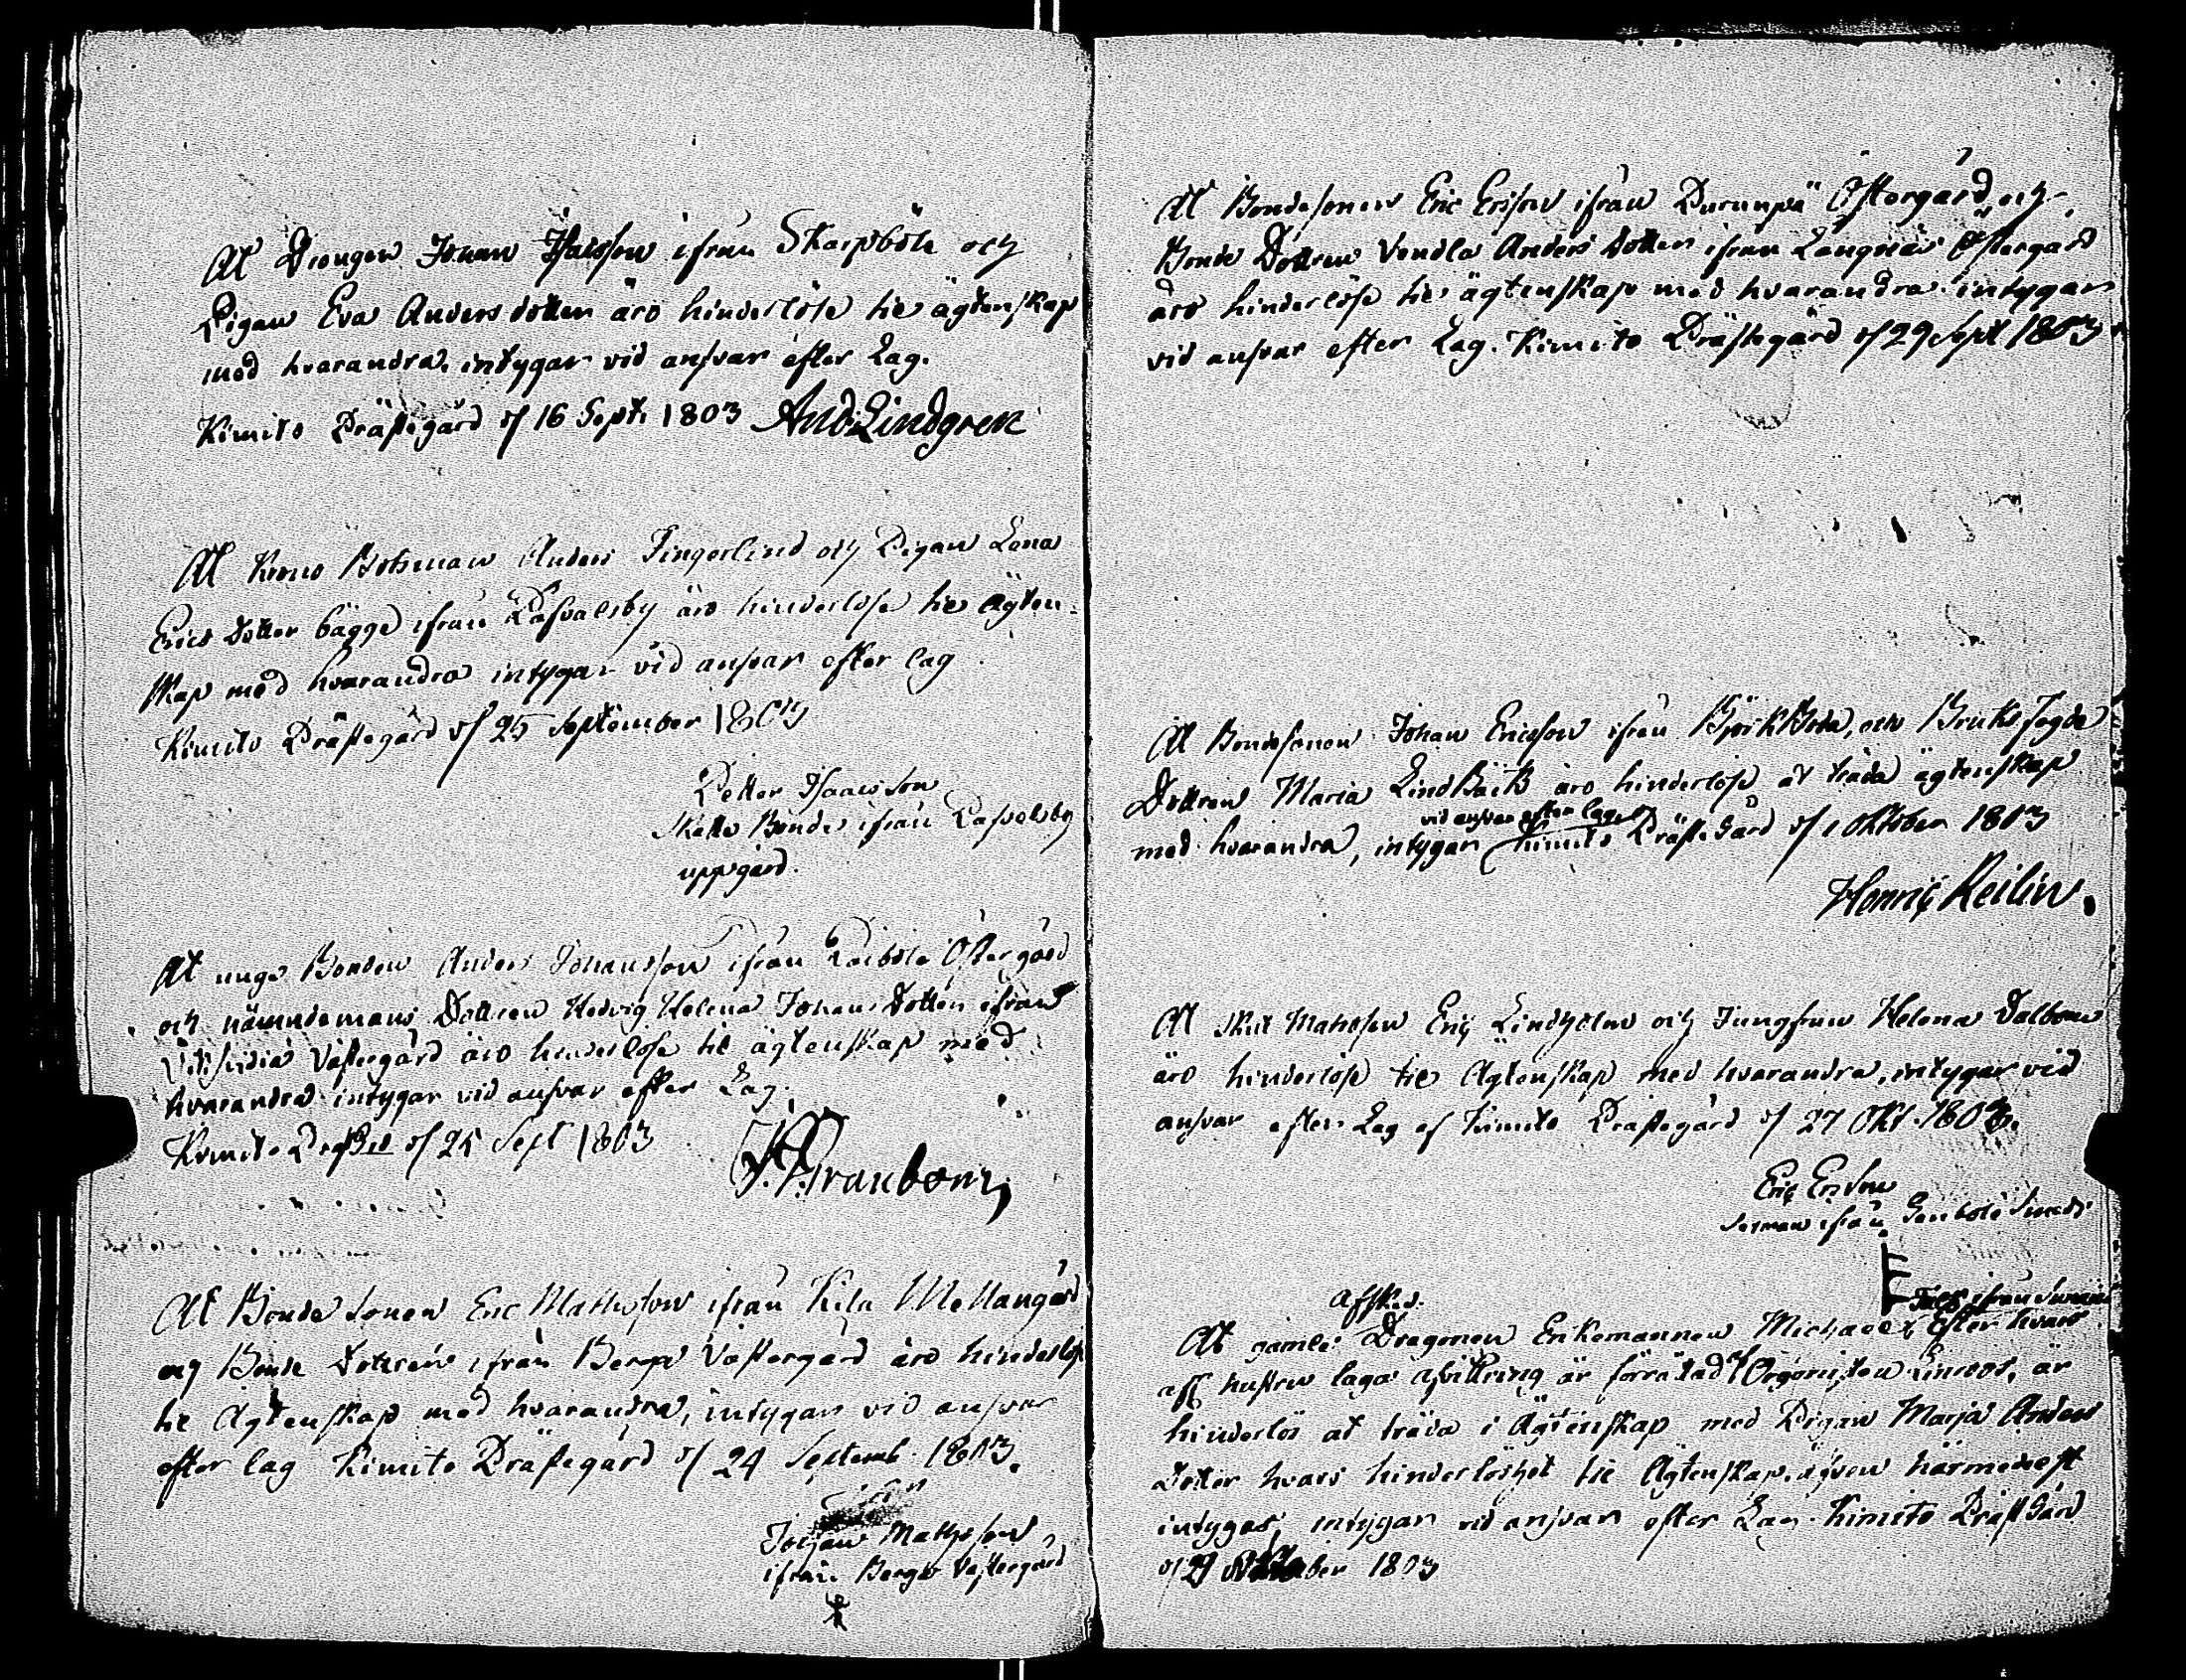 At Drengen Johan Isacsson ifrån Skarpböle och
Pigan Eva Anders dotter äro hinderlöse till ägtenskap
med hvarandra, intygar vid ansvar efter Lag.
Kimito Prästegård d 16 Sept. 1803 And: Lindgren
At Krono Botsman Anders Fingerlind och Pigan Lena
Erics dotter bägge ifrån Pasvalsby äro hinderlöse till Ägten-
skap med hvarandra intygar vid ansvar efter lag
Kimito Prästegård d 25 September 1803
Petter Isaacsson
Skatte Bonde ifrån Pasvalsby
uppgård.
At unge Bonden Anders Johansson ifrån Östergård
och nämndemans Dottren Hedvig Helena Johans Dotter ifrån
Västergård äro hinderlöse till ägtenskap med
hvarandra intygar vid ansvar efter Lag.
Kimito d 25 Sept 1803
At Bonde Sonen Eric Mathsson ifrån Kila Mellangård
och Bonde Dottren ifrån Berga Västergård äro hinderlöse
till Ägtenskap med hvarandra, intygar vid ansvar
efter lag Kimito Prästegård d 24 Septemb. 1803.
Johan Mathsson
ifrån Berga Västergård
At Bondesonen Eric Ersson ifrån Östergård och
Bonde Dottren Vendla Anders Dotter ifrån Långnäs Östergård
äro hinderlöse till ägtenskap med hvarandra intygar
vid ansvar efter Lag. Kimito Prästegård d 29 Sept 1803
At Bondesonen Johan Ericsson ifrån Björkboda, och Bruks fogde
Dottren Maria Lindbäck äro hinderlöse at träda ägtenskap
med hvarandra, intygar vid ansvar efter lag Kimito Präste Gård d 1 Oktober 1803
Henric Reilin.
At Eric Lindholm och Jungfrun Helena Dalbom
äro hinderlöse till Ägtenskap med hvarandra, intygar vid
ansvar efter Lag af Kimito Prästegård d 27 Okt. 1803.
Eric Ersson
ifrån
Afsked.
At gamle Dragonen Enkemannen Michael Falk ifrån efter hvars
afl hustru laga afvittring är förrättad af Organisten, är
hinderlös at träda i Ägtenskap med Pigan Maja Anders
Dotter hvars hinderlöshet till Ägtenskap äfven härmedelst
intygas, intygar vid ansvar efter Lag. Kimito Präst Gård
d 29 1803